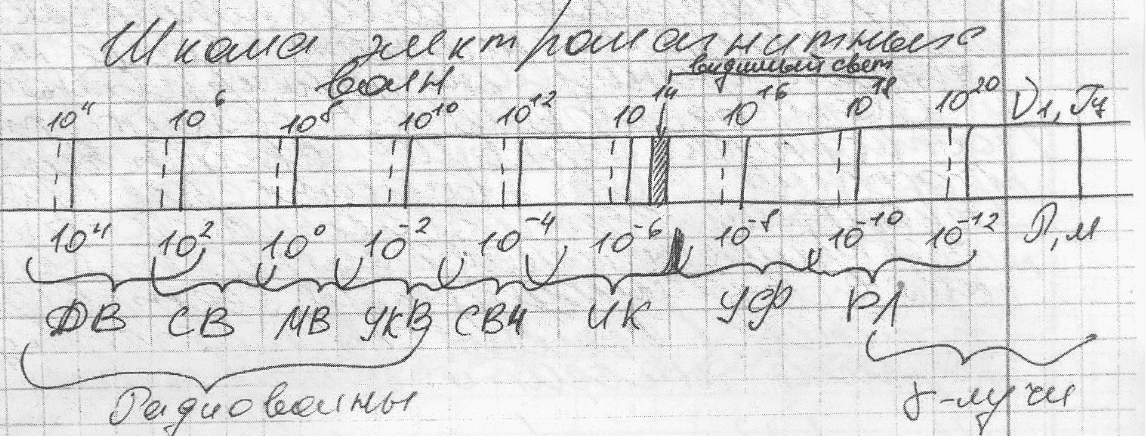 Шкала электромагнитных
волн
видимый свет
10⁴ 10⁶ 10⁸ 10¹⁰ 10¹² 10¹⁴ 10¹⁶ 10¹⁸ 10²⁰ ν, Гц
10⁴ 10² 10⁰ 10⁻² 10⁻⁴ 10⁻⁶ 10⁻⁸ 10⁻¹⁰ 10⁻¹² λ, м
ДВ СВ МВ УКВ СВЧ ИК УФ РЛ
Радиоволны γ-лучи